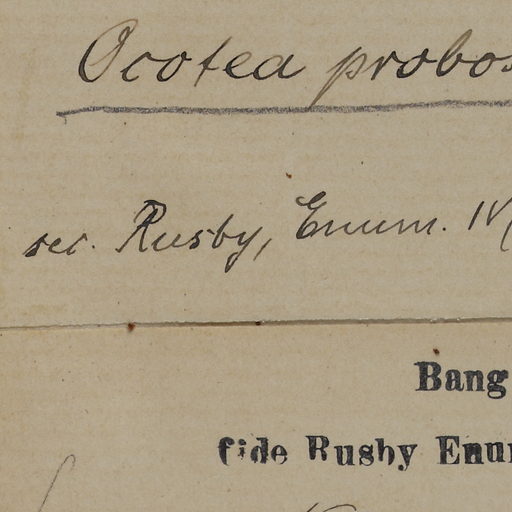 Ocotea probos
sec. Rusby, Enum.
Bang
fide Rusby Enum